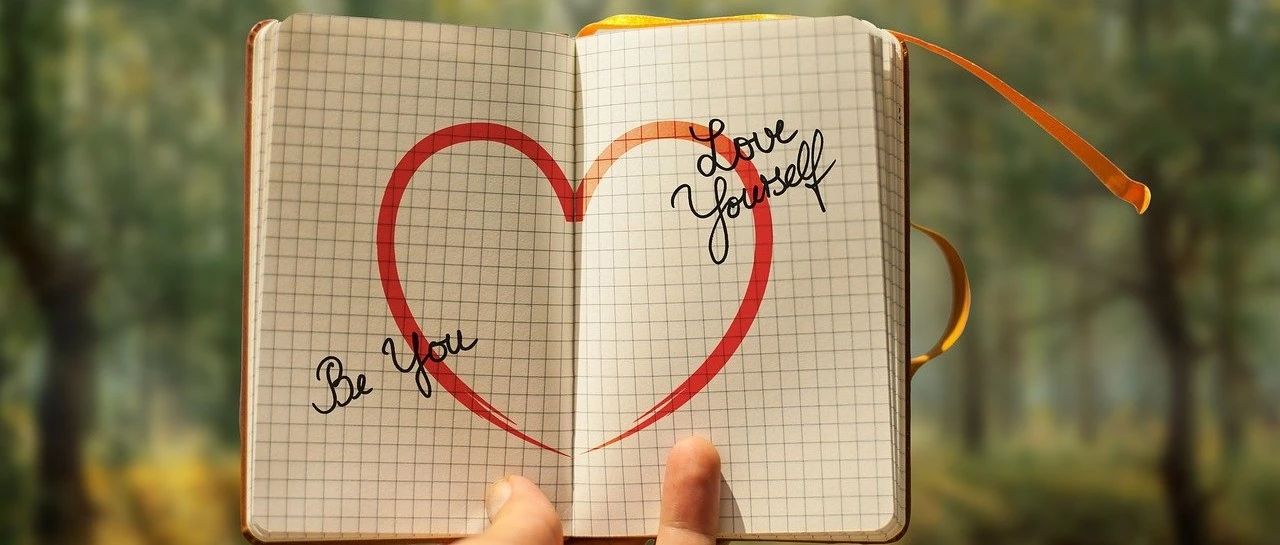 Be You
Love
Yourself